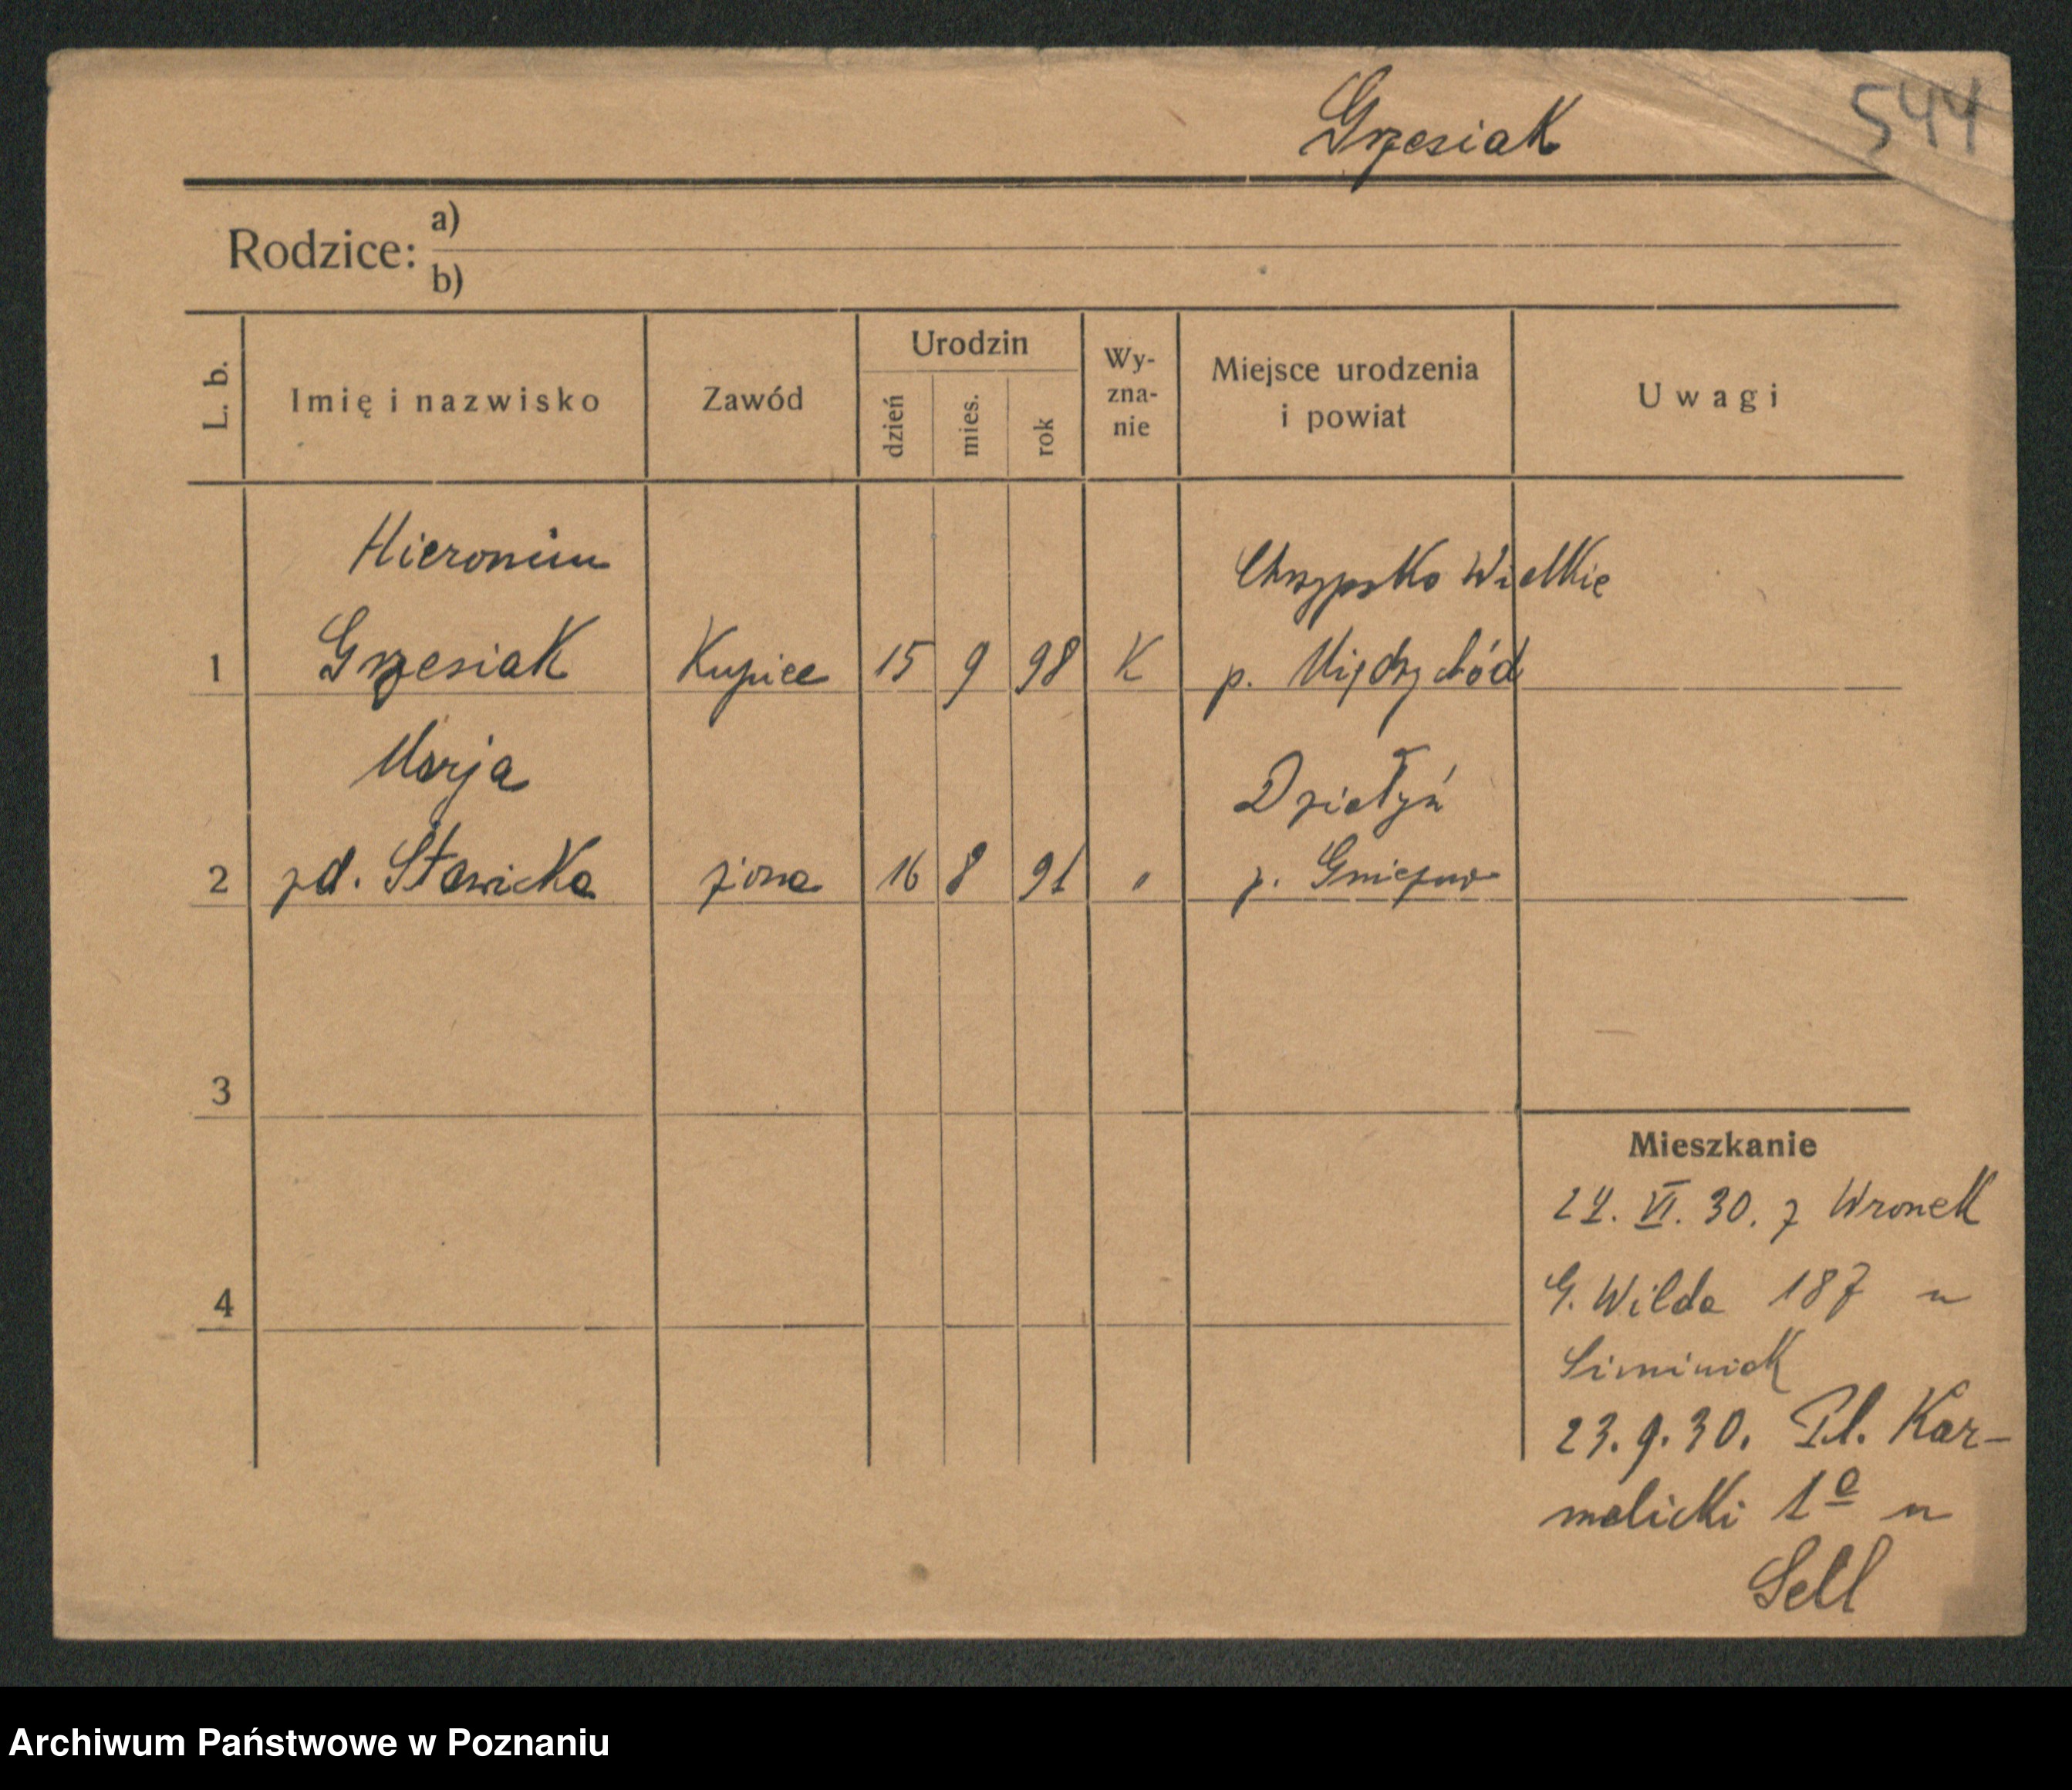 Grzesiak
544
Rodzice: a)
b)
L. b.
Imię i nazwisko
Zawód
Urodzin
dzień
mies.
rok
Wy-
zna-
nie
Miejsce urodzenia
i powiat
Uwagi
Hieronim
Chrzypsko Wielkie
1 Grzesiak Kupiec 15 9 98 K p. Międzychód
Marja
Działyń
2 zd. Stawicka żona 16 8 91 " p. Gniezno
3
Mieszkanie
24. VI. 30. z Wronek
4
G. Wilda 187 u
23.9.30. Pl. Kar-
melicki 1a u
Sell
Archiwum Państwowe w Poznaniu